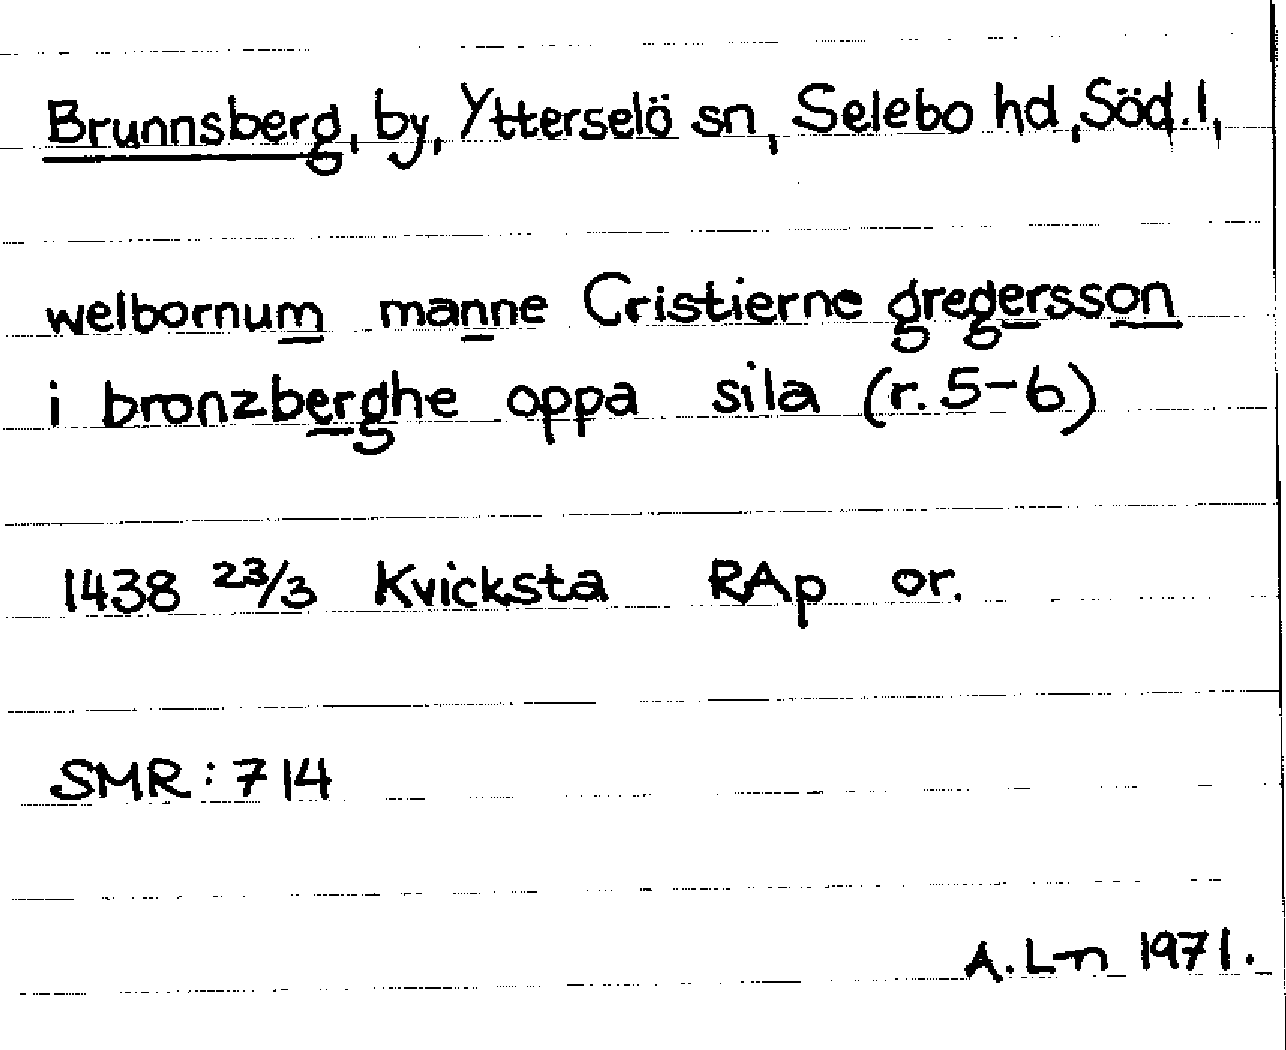 Brunnsberg, by, Ytterselö sn, Selebo hd, Söd.l,
welbornum manne Cristierne gregersson
i bronzberghe oppa sila (r. 5-6)
1438 23/3 Kvicksta RAp or.
SMR: 714
A. L-n 1971.